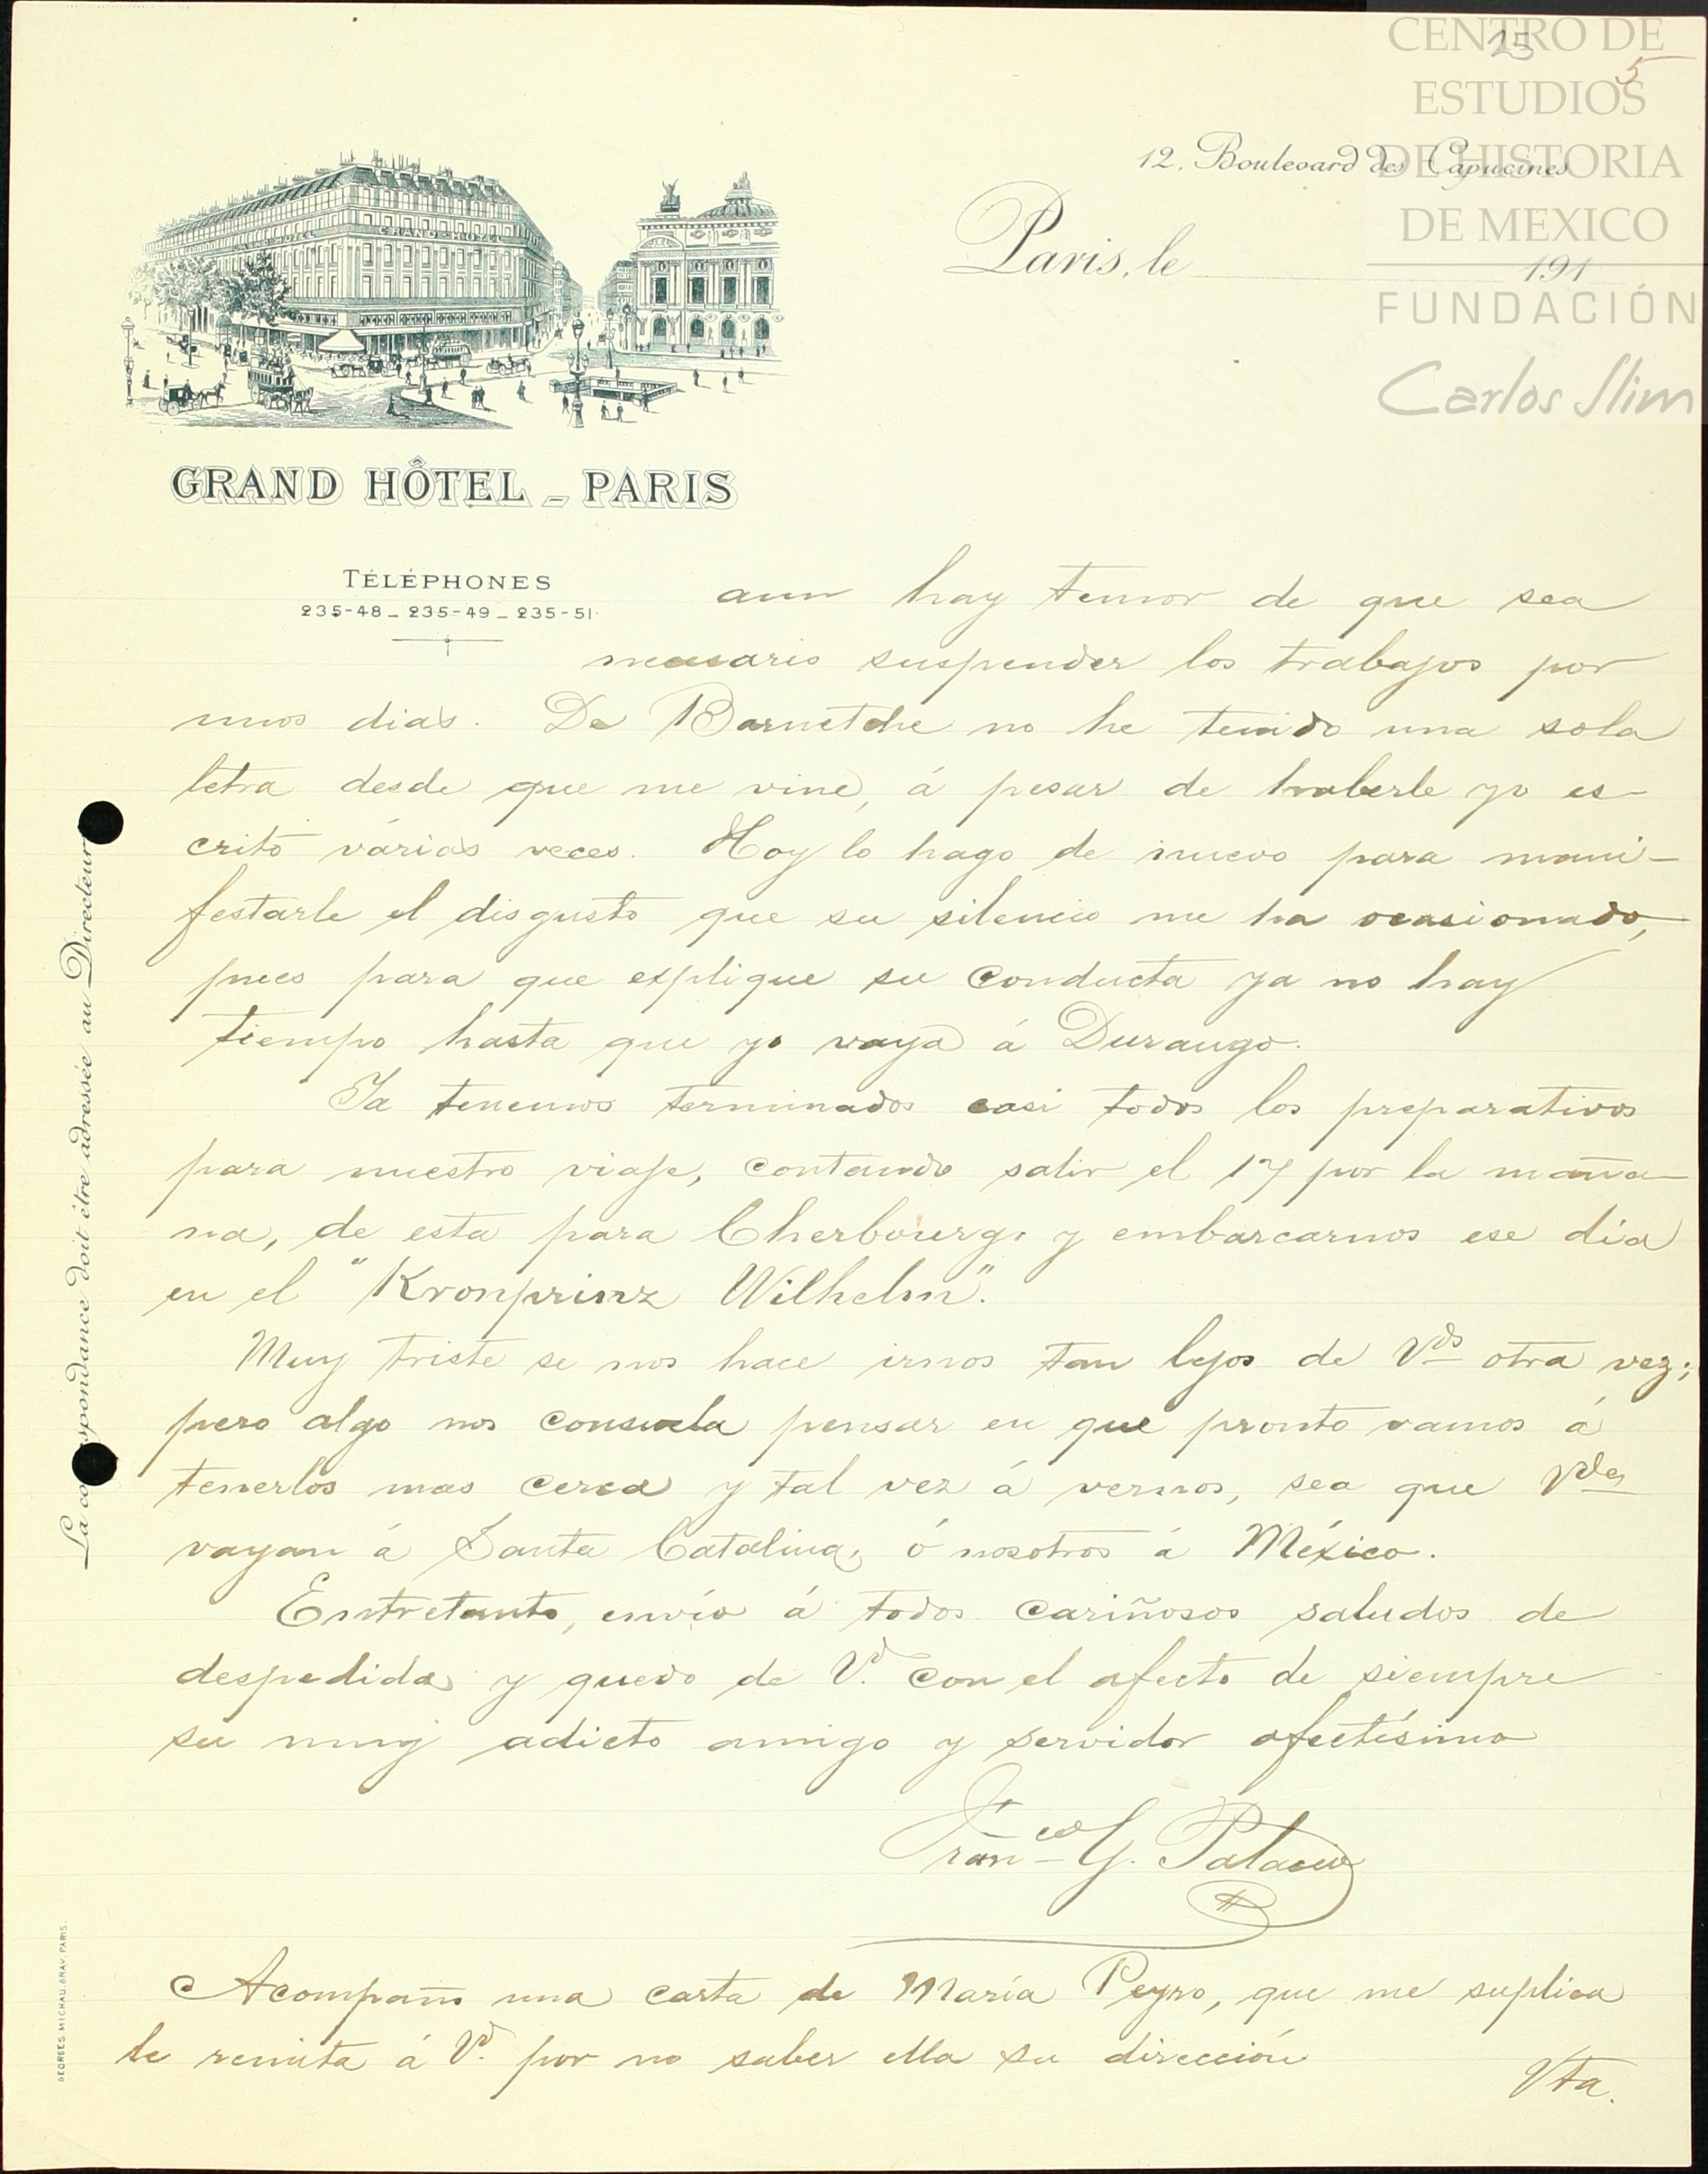 CENTRO DE
ESTUDIOS
DE HISTORIA
DE MEXICO
FUNDACIÓN
Carlos Slim
25
5
12, Boulevard des Capucines
Paris, le 191
GRAND HOTEL GRAND HOTEL
GRAND HÔTEL - PARIS
TÉLÉPHONES
235-48 - 235-49 - 235-51
aun hay temor de que sea
necesario suspender los trabajos por
unos dias. De Barnetche no he tenido una sola
letra desde que me vine, á pesar de haberle yo es-
crito várias veces. Hoy lo hago de nuevo para mani-
festarle el disgusto que su silencio me ha ocasionado,
pues para que explique su conducta ya no hay
tiempo hasta que yo vaya á Durango.
Ya tenemos terminados casi todos los preparativos
para nuestro viaje, contando salir el 17 por la maña-
na, de esta para Cherbourg, y embarcarnos ese día
en el "Kronprinz Wilhelm".
Muy triste se nos hace irnos tan lejos de Vds otra vez;
pero algo nos consuela pensar en que pronto vamos á
tenerlos mas cerca y tal vez á vernos, sea que Vdes
vayan á Santa Catalina, ó nosotros á México.
Entretanto, envío á todos cariñosos saludos de
despedida y quedo de Vd. con el afecto de siempre
su muy adicto amigo y servidor afectísimo
Franco G. Palacio
Acompaño una carta de María Peyro, que me suplica
le remita á Vd. por no saber ella su dirección
Vta.
La correspondance doit être adressée au Directeur
GEORGES MICHAU. GRAV. PARIS.